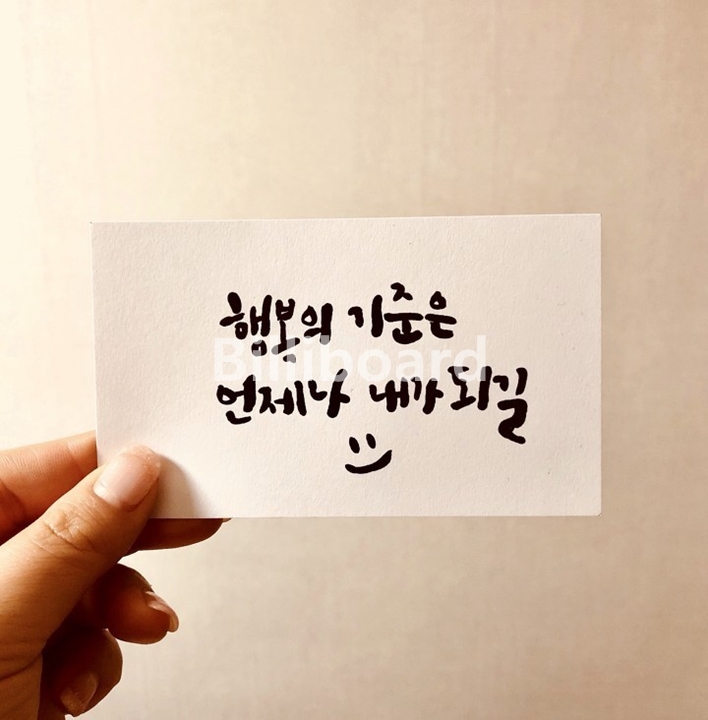 행복의 기준은
Billiboard
언제나 내가 되길